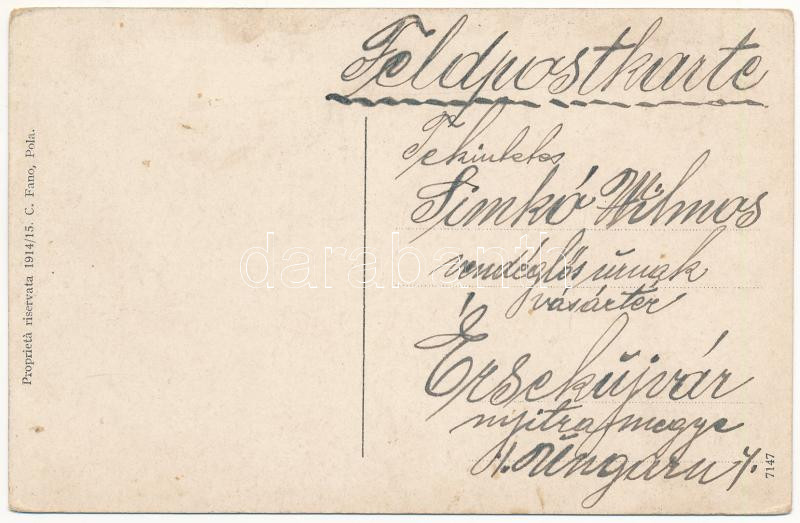 Feldpostkarte
Tekintetes
Simkó Vilmos
vendéglős úrnak
vásártér
Érsekújvár
nyitra megye
/. Ungarn /.
Proprietà riservata 1914/15. C. Fano, Pola.
7147
darabanth